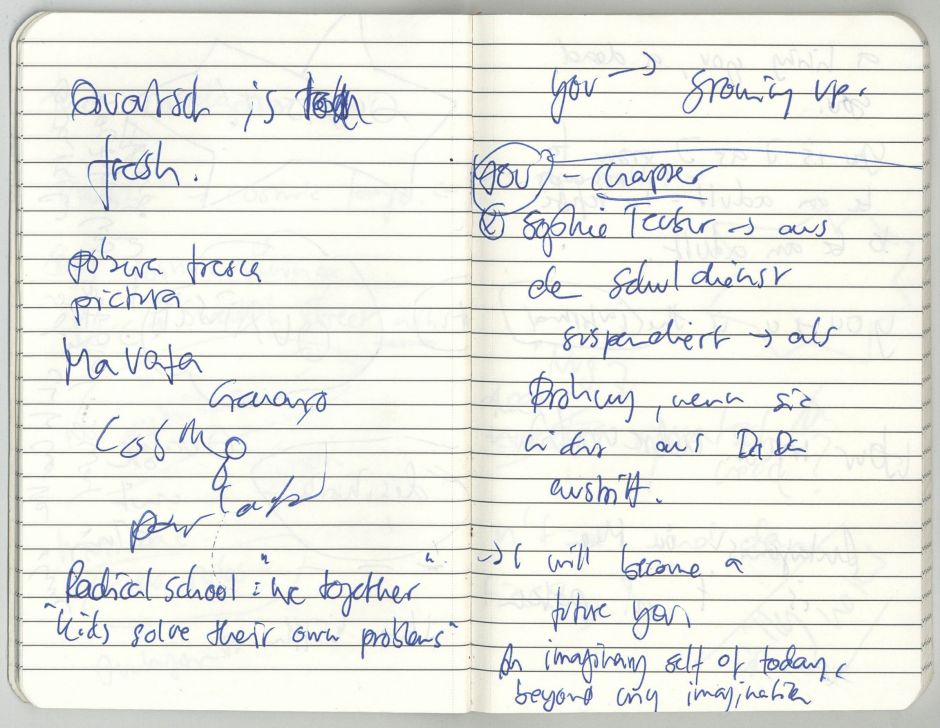 Quatsch is
fresh.
fresca
pictura
Mavata
Cosmo
Radical school: "we together"
"Kids solve their own problems"
you → growing up.
you - chapter
Sophie → aus
de Schuldienst
suspendiert → als
Drohung, wenn sie
wider aus DaDa
austritt.
→ I will become a
future you
An imaginary self of today,
beyond any imagination